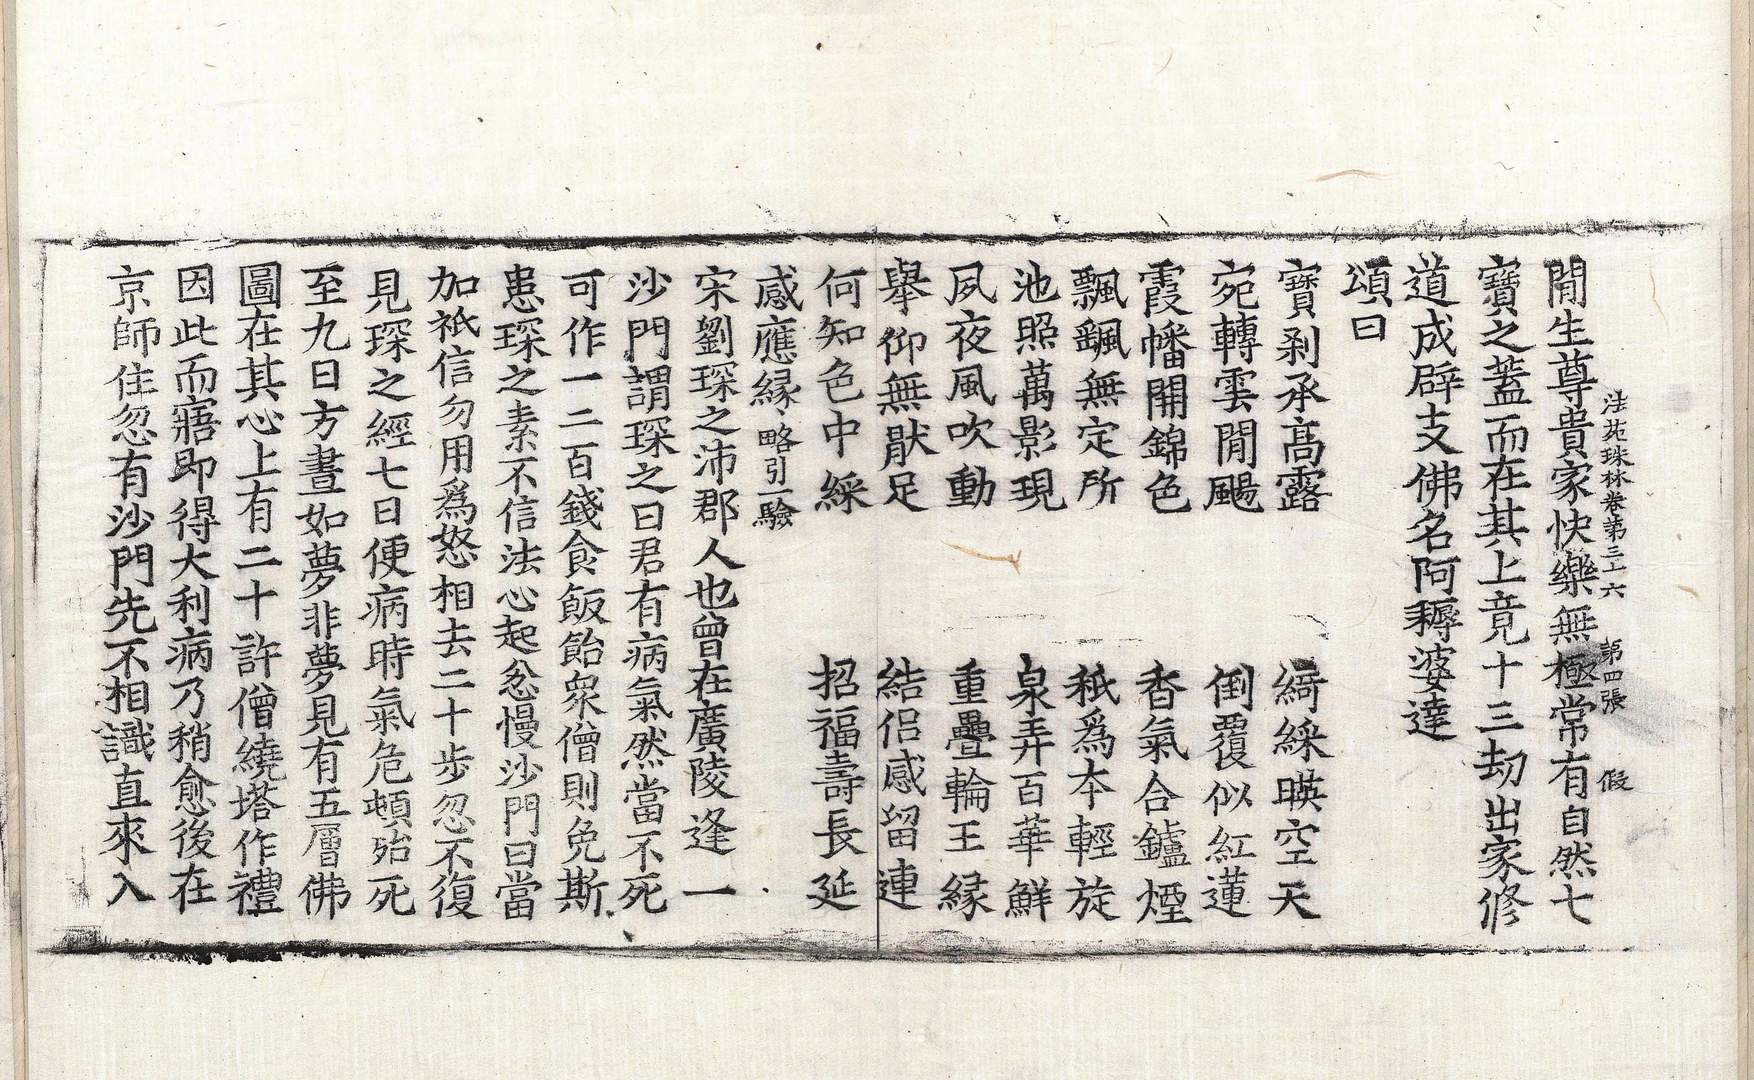 法苑珠林卷第三十六 第四張 假
閒生尊貴家快樂無極常有自然七
寶之蓋而在其上竟十三劫出家修
道成辟支佛名阿耨婆達
頌曰
寶剎承高露 綺綵暎空天
宛轉雲閒颺 倒覆似紅蓮
霞幡開錦色 香氣合鑪煙
飄颻無定所 秖為本輕旋
池照萬影現 泉弄百華鮮
夙夜風吹動 重疊輪王緣
舉仰無猒足 結侶感留連
何知色中綵 招福壽長延
感應緣 略引一驗
宋劉琛之沛郡人也曾在廣陵逢一
沙門謂琛之曰君有病氣然當不死
可作一二百錢食飯飴眾僧則免斯
患琛之素不信法心起忿慢沙門曰當
加祇信勿用為怒相去二十步忽不復
見琛之經七日便病時氣危頓殆死
至九日方晝如夢非夢見有五層佛
圖在其心上有二十許僧繞塔作禮
因此而寤即得大利病乃稍愈後在
京師住忽有沙門先不相識直來入